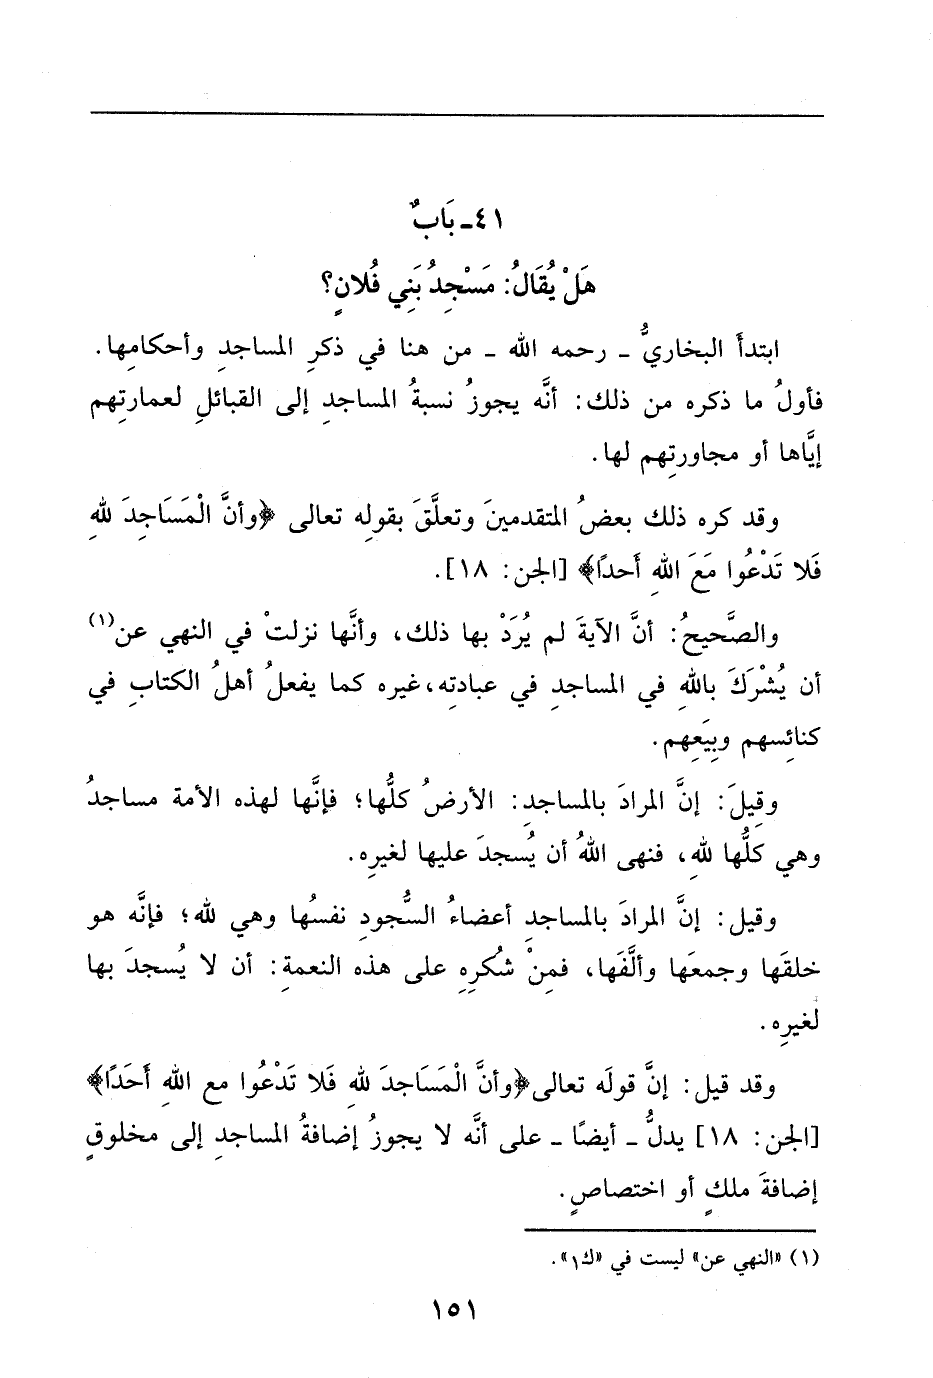 ٤١ـ بَابٌ
هَلْ يُقَالُ: مَسْجِدُ بَنِي فُلانٍ؟
ابتدأَ البخاريُّ ـ رحمه الله ـ من هنا في ذكرِ المساجدِ وأحكامِها.
فأولُ ما ذكره من ذلك: أنَّه يجوزُ نسبةُ المساجدِ إلى القبائلِ لعمارتِهم
إيَّاها أو مجاورتِهم لها.
وقد كره ذلك بعضُ المتقدمينَ وتعلَّقَ بقولِه تعالى ﴿وأنَّ الْمَسَاجِدَ للهِ
فَلا تَدْعُوا مَعَ اللهِ أَحداً﴾ [الجن: ١٨].
والصَّحيحُ: أنَّ الآيةَ لم يُرَدْ بها ذلك، وأنَّها نزلتْ في النهي عن(١)
أن يُشْرَكَ باللهِ في المساجدِ في عبادتِه، غيره كما يفعلُ أهلُ الكتابِ في
كنائِسهم وبِيَعِهم.
وقِيلَ: إنَّ المرادَ بالمساجدِ: الأرضُ كلُّها؛ فإنَّها لهذه الأمة مساجدُ
وهي كلُّها للهِ، فنهى اللهُ أن يُسجدَ عليها لغيرِه.
وقيل: إنَّ المرادَ بالمساجدِ أعضاءُ السُّجودِ نفسُها وهي للهِ؛ فإنَّه هو
خلقَها وجمعَها وألَّفَها، فمِنْ شُكرِهِ على هذه النعمةِ: أن لا يُسجدَ بها
لغيرِه.
وقد قيل: إنَّ قولَه تعالى ﴿وأنَّ الْمَسَاجِدَ للهِ فَلا تَدْعُوا مع اللهِ أَحَداً﴾
[الجن: ١٨] يدلُّ ـ أيضًا ـ على أنَّه لا يجوزُ إضافةُ المساجدِ إلى مخلوقٍ
إضافةَ ملكٍ أو اختصاصٍ.
(١) «النهي عن» ليست في «ك١».
١٥١